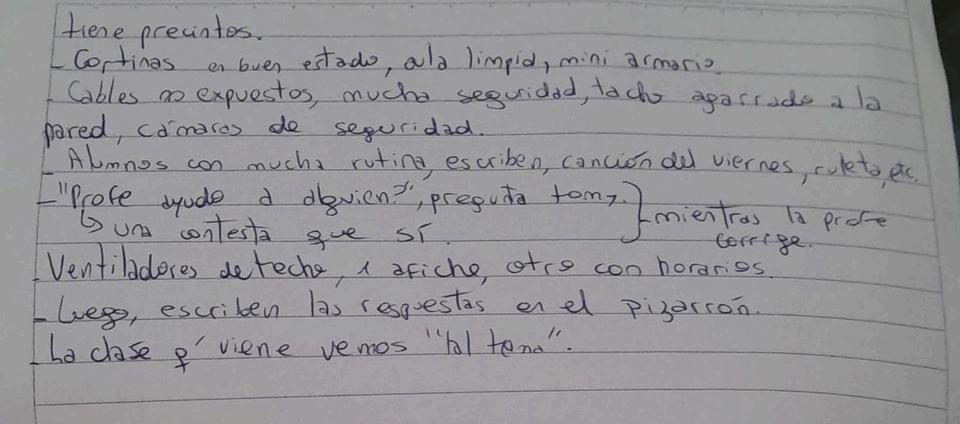 tiene precintos.
- Cortinas en buen estado, aula limpia, mini armario.
- Cables no expuestos, mucha seguridad, tacho agarrado a la
pared, cámaras de seguridad.
- Alumnos con mucha rutina, escriben, canción del viernes, ruleta, etc.
- "Profe ayudo a alguien?", pregunta tomy } mientras la profe
↳ una contesta que sí. corrige.
- Ventiladores de techo, 1 afiche, otro con horarios.
- Luego, escriben las respuestas en el pizarrón.
- La clase q' viene vemos "tal tema".